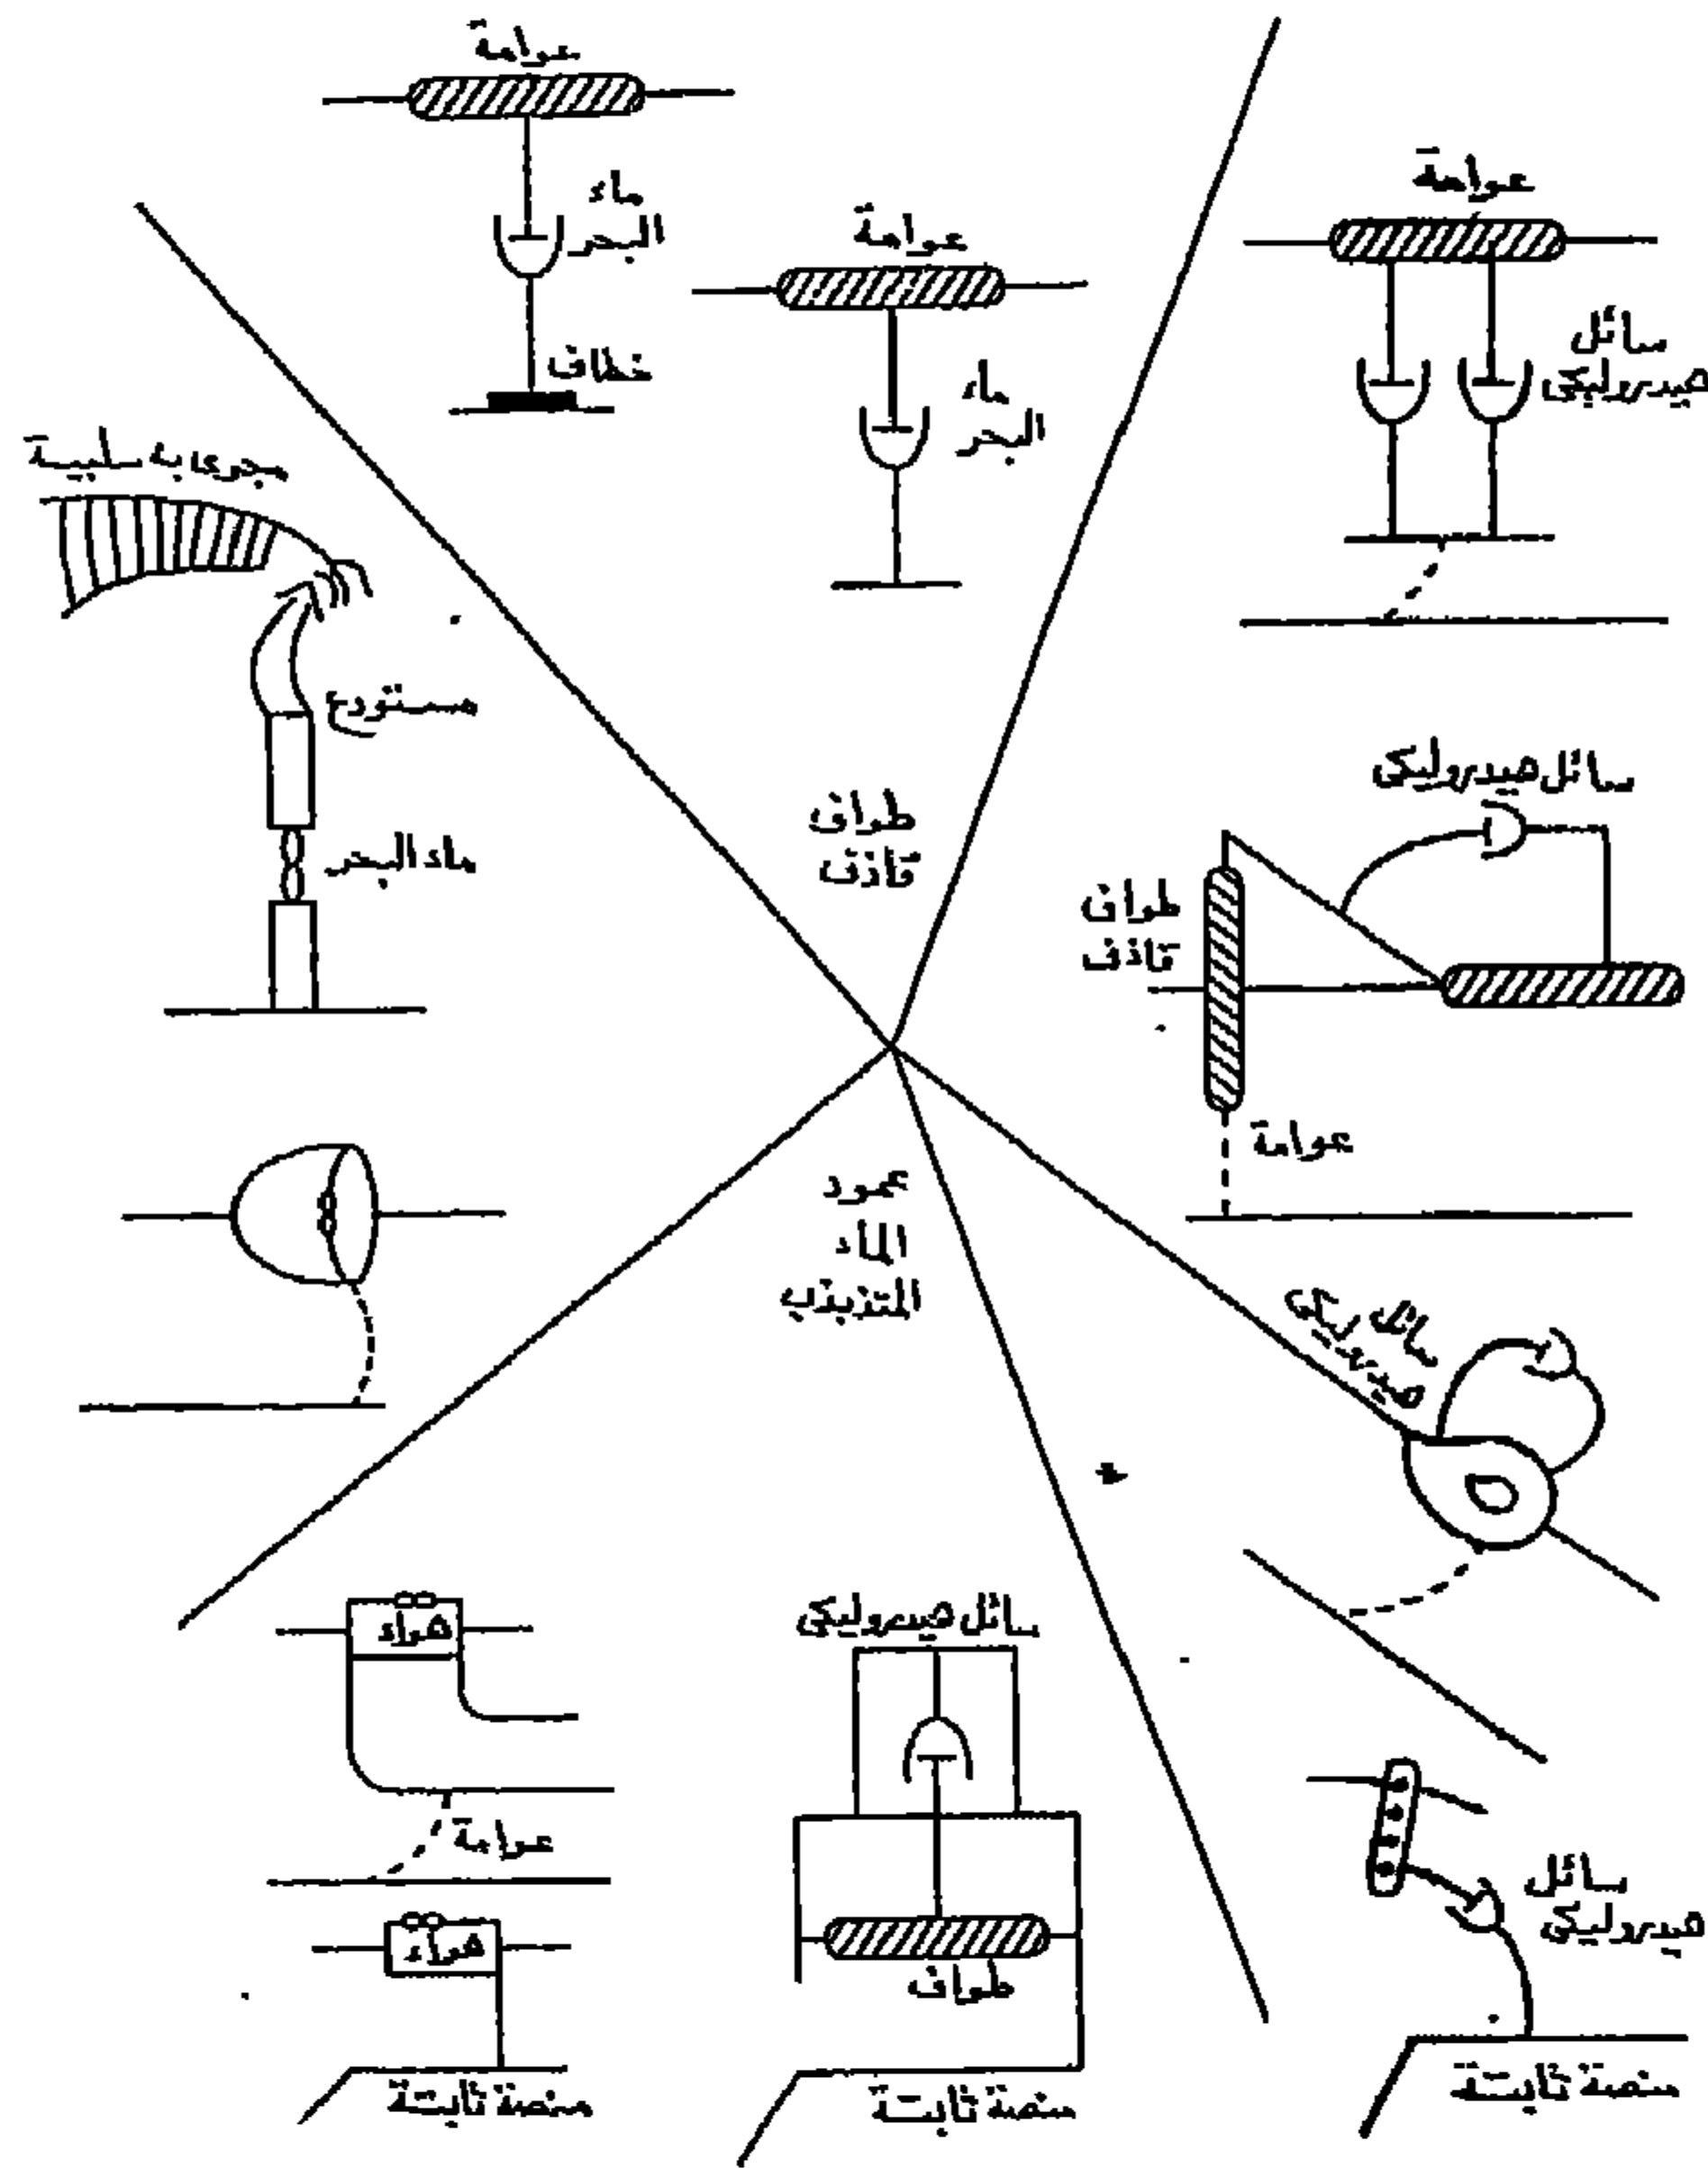 عوامة
ماء
البحر
خطاف
عوامة
ماء
البحر
عوامة
سائل
هيدروليكى
مستودع
ماء البحر
طواف
قاذف
سائل هيدروليكى
طواف
قاذف
عوامة
عمود
الماء
المتذبذب
سائل
هواء
عوامة
هواء
منصة ثابتة
سائل هيدروليكى
طواف
منصة ثابتة
سائل
هيدروليكى
منصة ثابتة